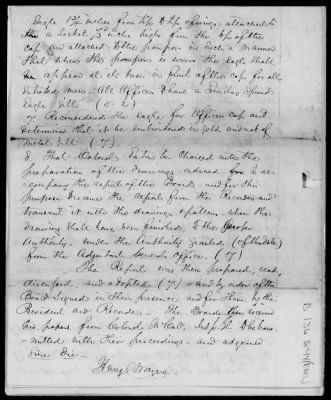 Eagle 1¾ inches from tip to tip of wings - attached to
a Socket, ⅞ inches high from the top of the
cap and attached to the pompon in such a manner
that when the pompon is worn the Eagle shall
appear at its base in front of the cap for all
enlisted men - All Officers to have a similar
Eagle Gilt (6-2)
7 Reconsidered the Eagle for Officers cap and
determined that it be embroidered in gold and not of
metal gilt (7)
8 That Colonel Eaton be charged with the
preparation of the drawings ordered to ac-
company the report of the Board - and for this
purpose to receive the report from the Recorder and
transmit it with the drawings & patterns when the
drawings shall have been finished, to the proper
Authority - under the Authority granted
from the Adjutant General's Office. (7)
The Report was then prepared, read,
discussed, and adopted (7) - and by order of the
Board Signed in their presence and for them, by the
President and Recorder - The Board then received
papers from Colonel McCall, Ins. Genl.
mitted with their proceedings - and adjourned
Sine Die -
Henry C. Wayne